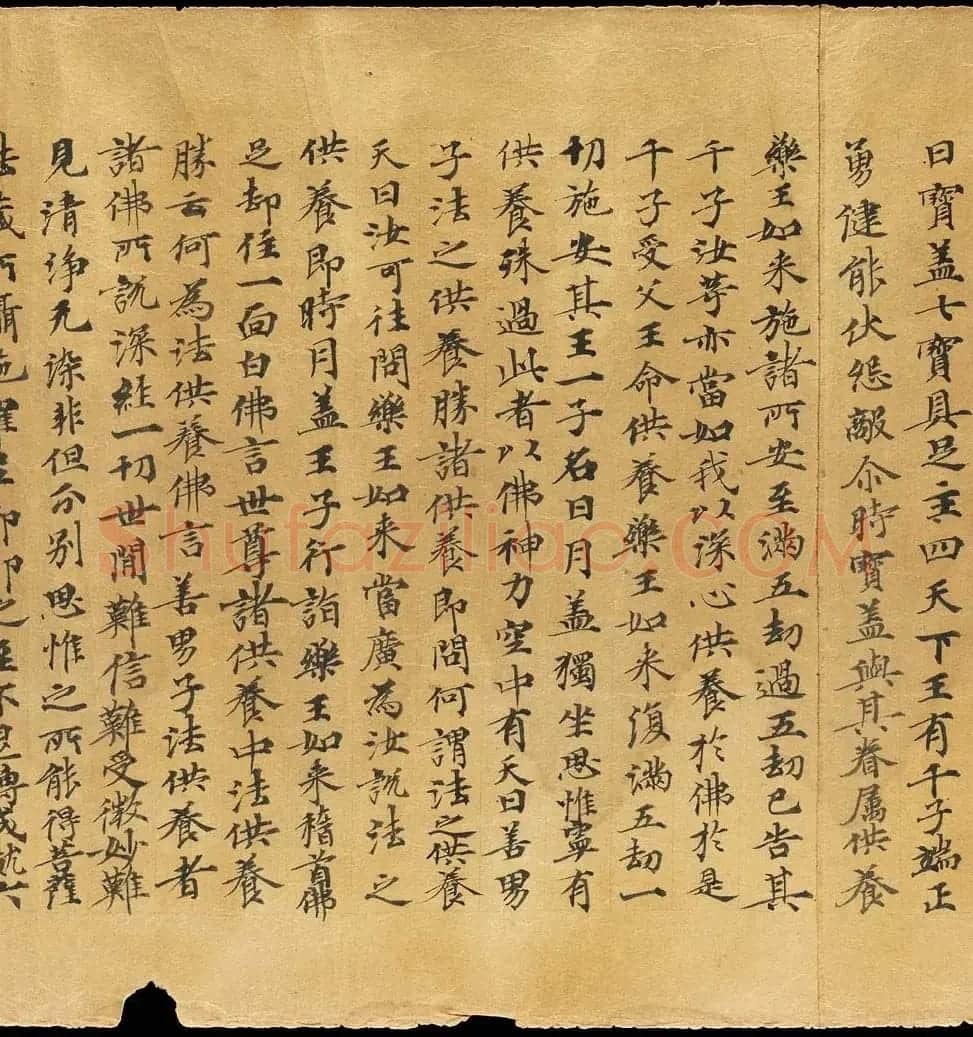 曰寶盖七寶具足主四天下王有千子端正
勇健能伏怨敵尒時寶盖與其眷属供養
藥王如来施諸所安至滿五劫過五劫已告其
千子汝等亦當如我以深心供養於佛於是
千子受父王命供養藥王如来復滿五劫一
切施安其王一子名曰月盖獨坐思惟寧有
供養殊過此者以佛神力空中有天曰善男
子法之供養勝諸供養即問何謂法之供養
天曰汝可往問藥王如来當廣為汝說法之
供養即時月盖王子行詣藥王如来稽首佛
足却住一面白佛言世尊諸供養中法供養
勝云何為法供養佛言善男子法供養者
諸佛所說深経一切世間難信難受微妙難
見清净无染非但分别思惟之所能得菩薩
Shufaziliao.COM